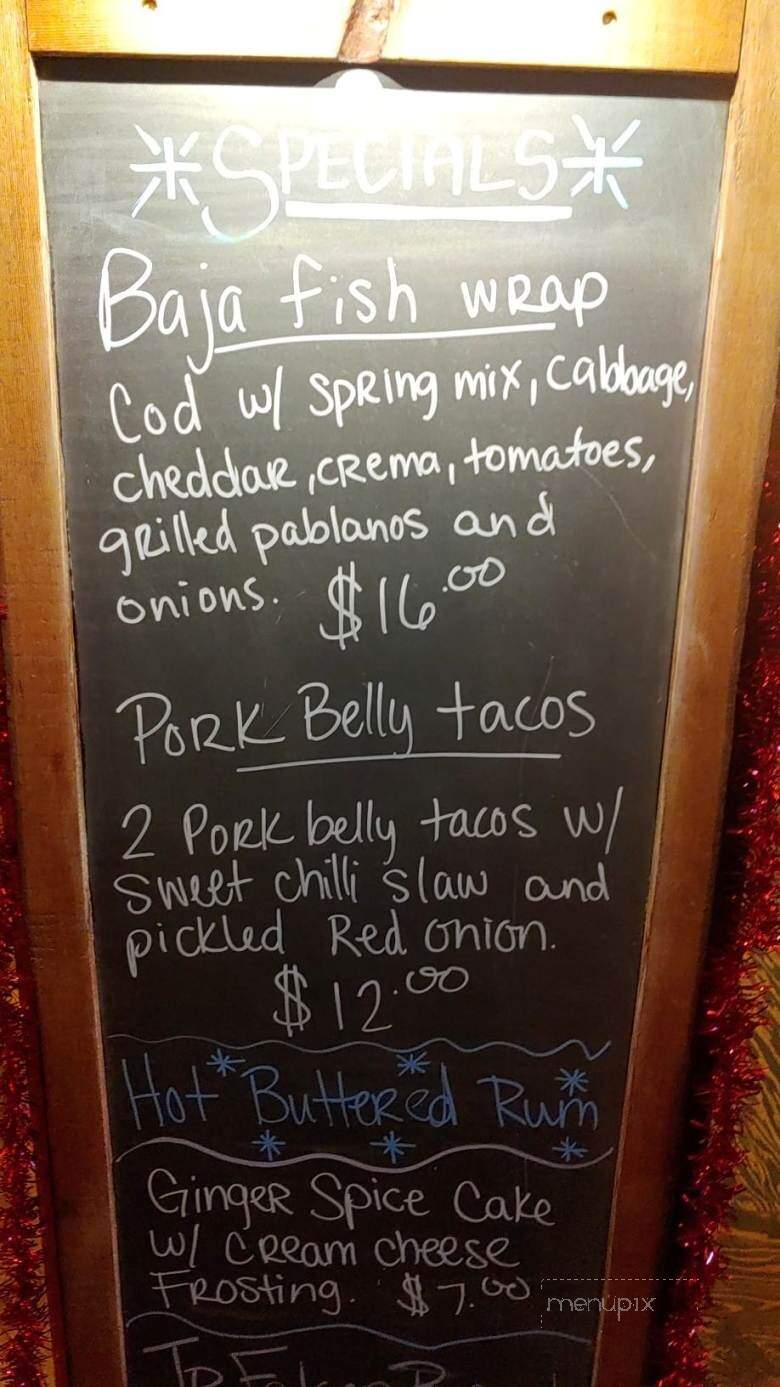 *SPECIALS*
Baja fish wrap
Cod w/ spring mix, cabbage,
cheddar, crema, tomatoes,
grilled pablanos and
onions. $16.00
Pork Belly tacos
2 Pork belly tacos w/
sweet chilli slaw and
pickled Red onion.
$12.00
Hot Buttered Rum
Ginger Spice Cake
w/ cream cheese
Frosting. $7.00
menupix